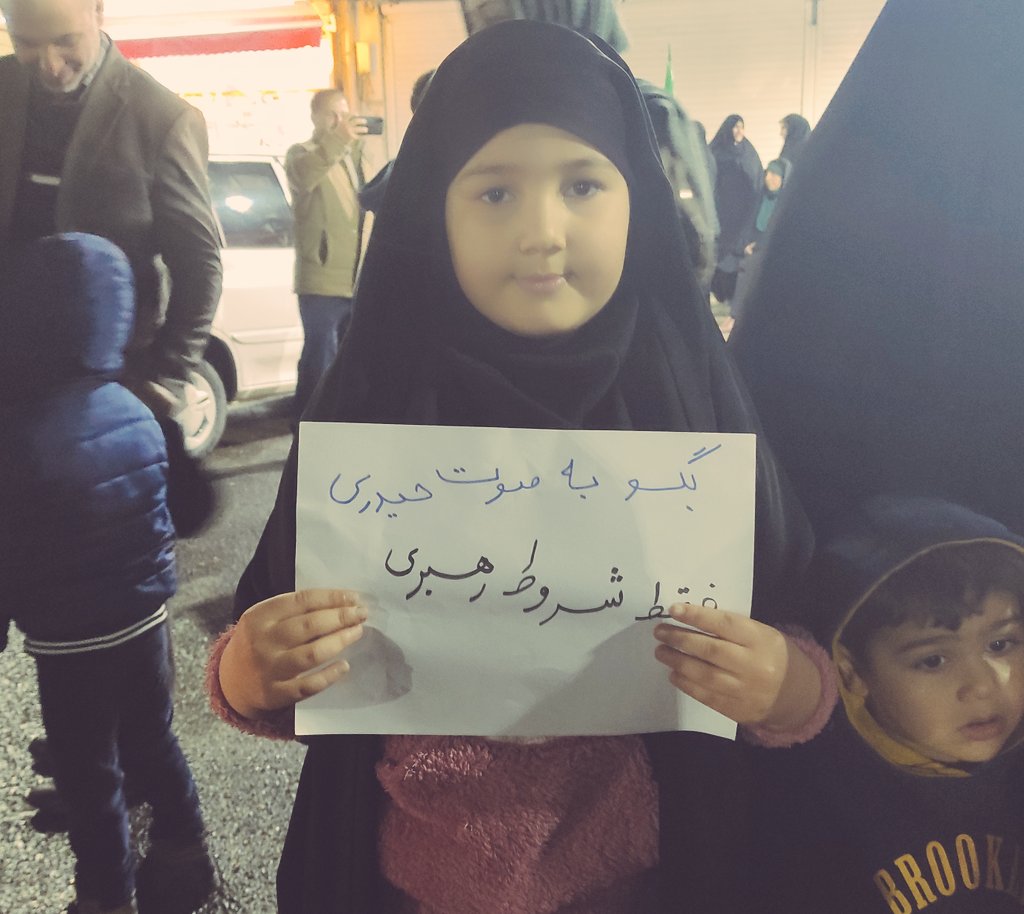 بگو به صوت حیدری
فقط شروط رهبری
BROOK